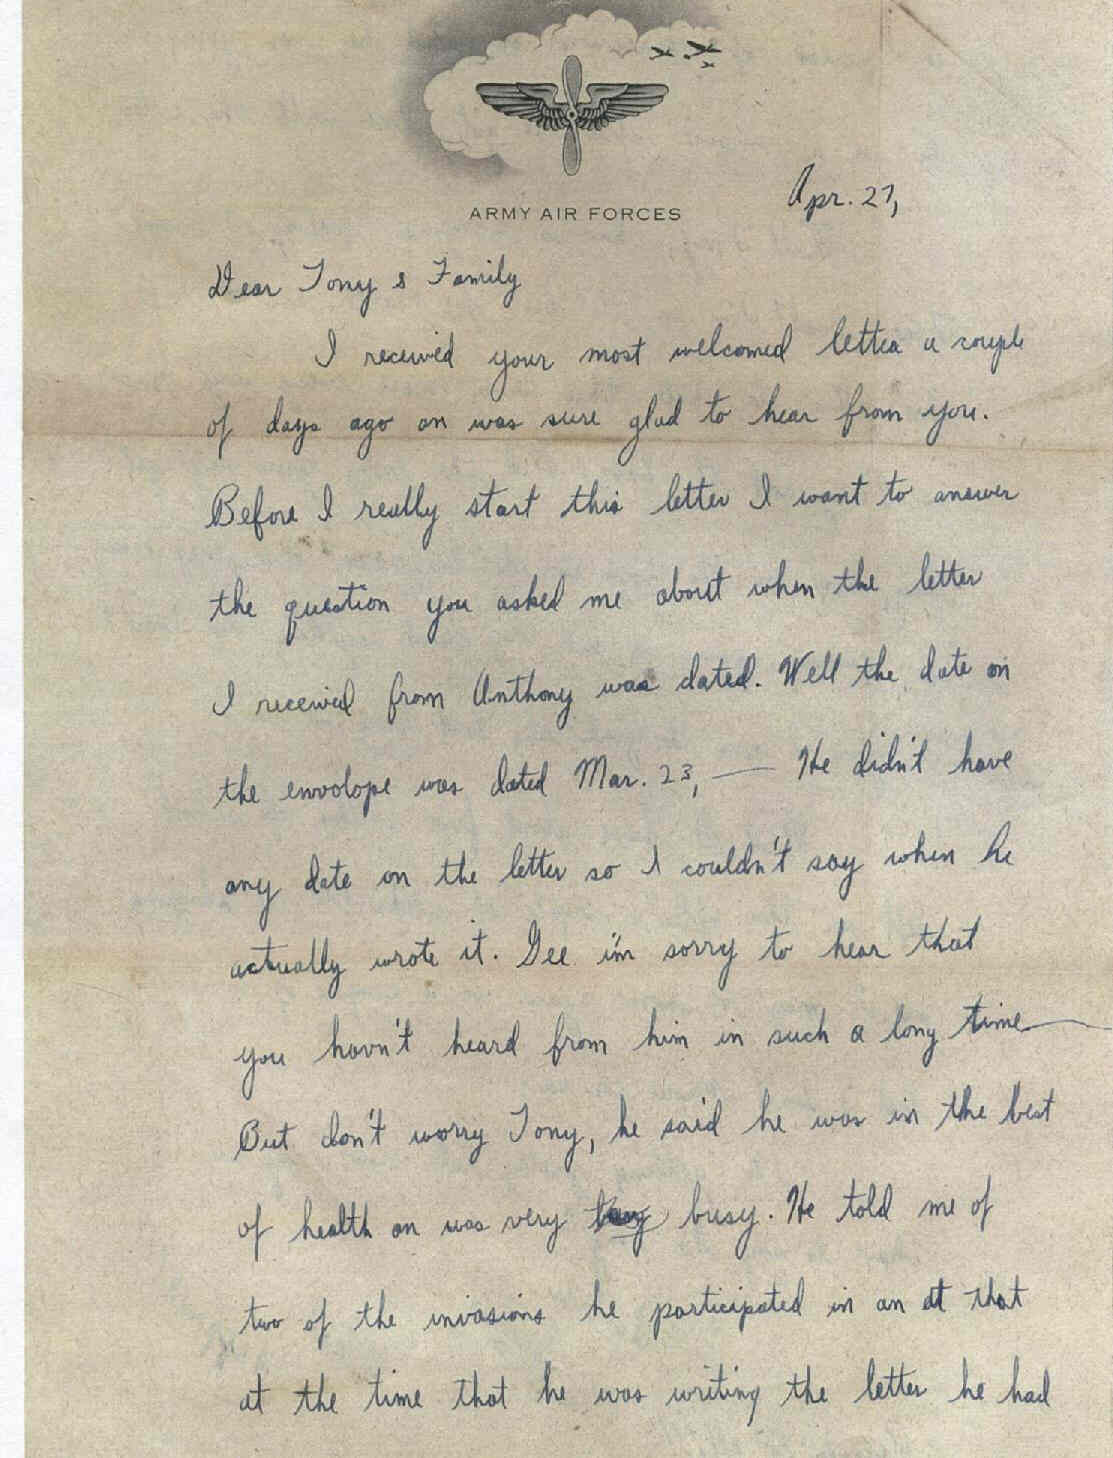 ARMY AIR FORCES
Apr. 27,
Dear Tony & Family
I received your most welcomed letter a couple
of days ago an was sure glad to hear from you.
Before I really start this letter I want to answer
the question you asked me about when the letter
I received from Anthony was dated. Well the date on
the envolope was dated Mar. 23, — He didn't have
any date on the letter so I couldn't say when he
actually wrote it. Gee i'm sorry to hear that
you havn't heard from him in such a long time
But don't worry Tony, he said he was in the best
of health an was very busy. He told me of
two of the invasions he participated in an at that
at the time that he was writing the letter he had